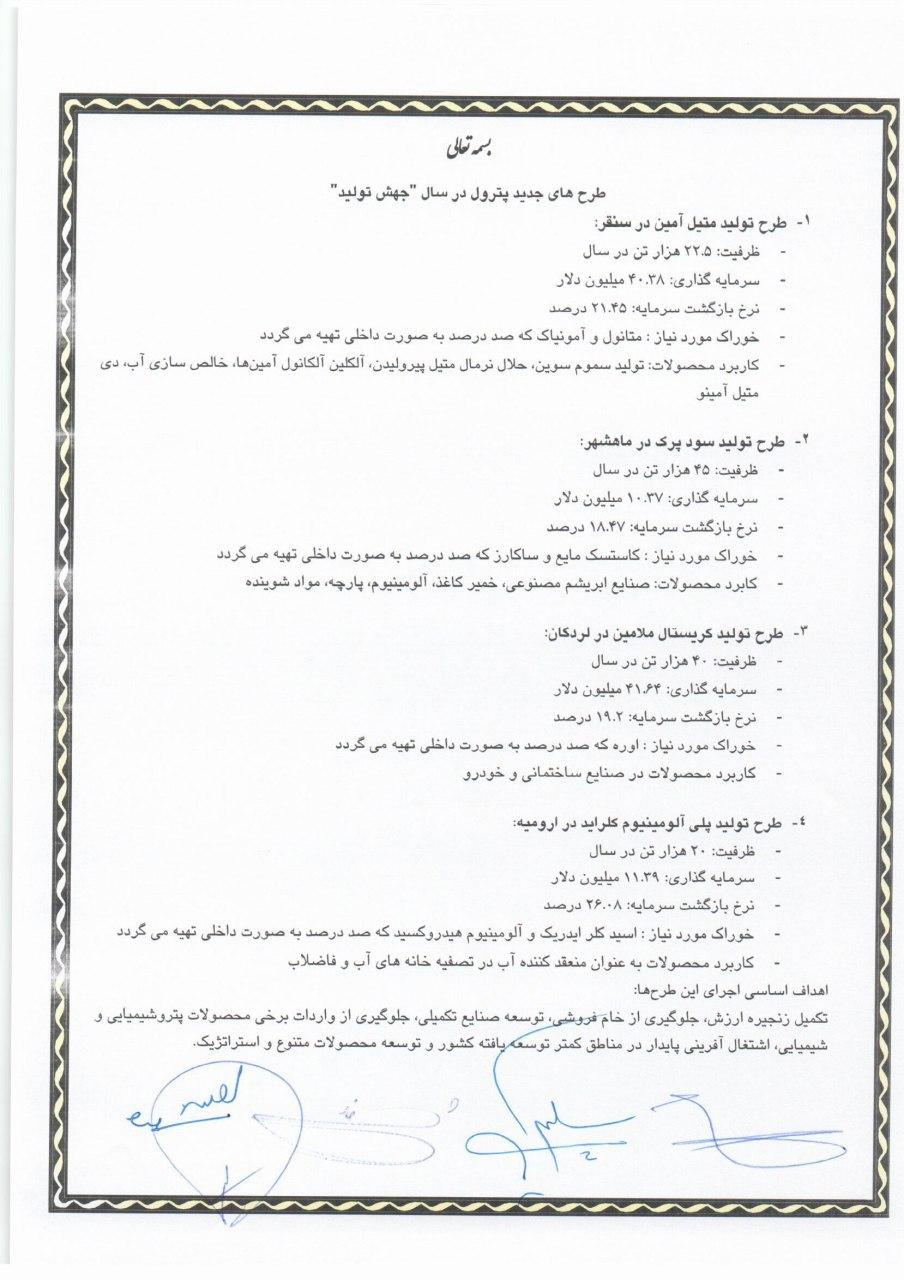 بسمه تعالی
طرح های جدید پترول در سال "جهش تولید"
۱- طرح تولید متیل آمین در سنقر:
- ظرفیت: ۲۲.۵ هزار تن در سال
- سرمایه گذاری: ۴۰.۳۸ میلیون دلار
- نرخ بازگشت سرمایه: ۲۱.۴۵ درصد
- خوراک مورد نیاز : متانول و آمونیاک که صد درصد به صورت داخلی تهیه می گردد
- کاربرد محصولات: تولید سموم سوین، حلال نرمال متیل پیرولیدن، آلکلین آلکانول آمین‌ها، خالص سازی آب، دی
متیل آمینو
۲- طرح تولید سود پرک در ماهشهر:
- ظرفیت: ۴۵ هزار تن در سال
- سرمایه گذاری: ۱۰.۳۷ میلیون دلار
- نرخ بازگشت سرمایه: ۱۸.۴۷ درصد
- خوراک مورد نیاز : کاستسک مایع و ساکارز که صد درصد به صورت داخلی تهیه می گردد
- کابرد محصولات: صنایع ابریشم مصنوعی، خمیر کاغذ، آلومینیوم، پارچه، مواد شوینده
۳- طرح تولید کریستال ملامین در لردگان:
- ظرفیت: ۴۰ هزار تن در سال
- سرمایه گذاری: ۴۱.۶۴ میلیون دلار
- نرخ بازگشت سرمایه: ۱۹.۲ درصد
- خوراک مورد نیاز : اوره که صد درصد به صورت داخلی تهیه می گردد
- کاربرد محصولات در صنایع ساختمانی و خودرو
۴- طرح تولید پلی آلومینیوم کلراید در ارومیه:
- ظرفیت: ۲۰ هزار تن در سال
- سرمایه گذاری: ۱۱.۳۹ میلیون دلار
- نرخ بازگشت سرمایه: ۲۶.۰۸ درصد
- خوراک مورد نیاز : اسید کلر ایدریک و آلومینیوم هیدروکسید که صد درصد به صورت داخلی تهیه می گردد
- کاربرد محصولات به عنوان منعقد کننده آب در تصفیه خانه های آب و فاضلاب
اهداف اساسی اجرای این طرح‌ها:
تکمیل زنجیره ارزش، جلوگیری از خام فروشی، توسعه صنایع تکمیلی، جلوگیری از واردات برخی محصولات پتروشیمیایی و
شیمیایی، اشتغال آفرینی پایدار در مناطق کمتر توسعه یافته کشور و توسعه محصولات متنوع و استراتژیک.